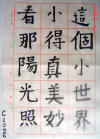 這個小世界
小得真美妙
看那陽光照